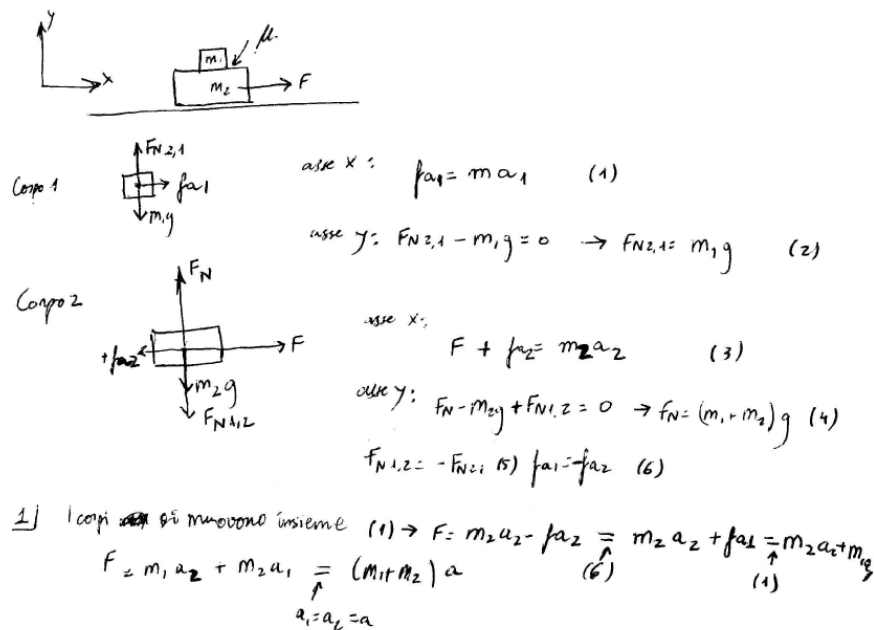 y
x
m₁ μ.
m₂ F
Corpo 1 F_N2,1 fa1 m₁g
asse x: fa1 = m a₁ (1)
asse y: F_N2,1 - m₁g = 0 → F_N2,1 = m₁g (2)
Corpo 2 F_N F +fa2 m₂g F_N1,2
asse x:
F + fa2 = m₂a₂ (3)
asse y: F_N - m₂g + F_N1,2 = 0 → f_N = (m₁+m₂)g (4)
F_N1,2 = -F_N2,1 (5) fa1 = -fa2 (6)
1] I corpi si muovono insieme (1) → F = m₂a₂ - fa2 = m₂a₂ + fa1 = m₂a₂ +
(6) (1)
F = m₁a₂ + m₂a₁ = (m₁+m₂) a
a₁=a₂=a